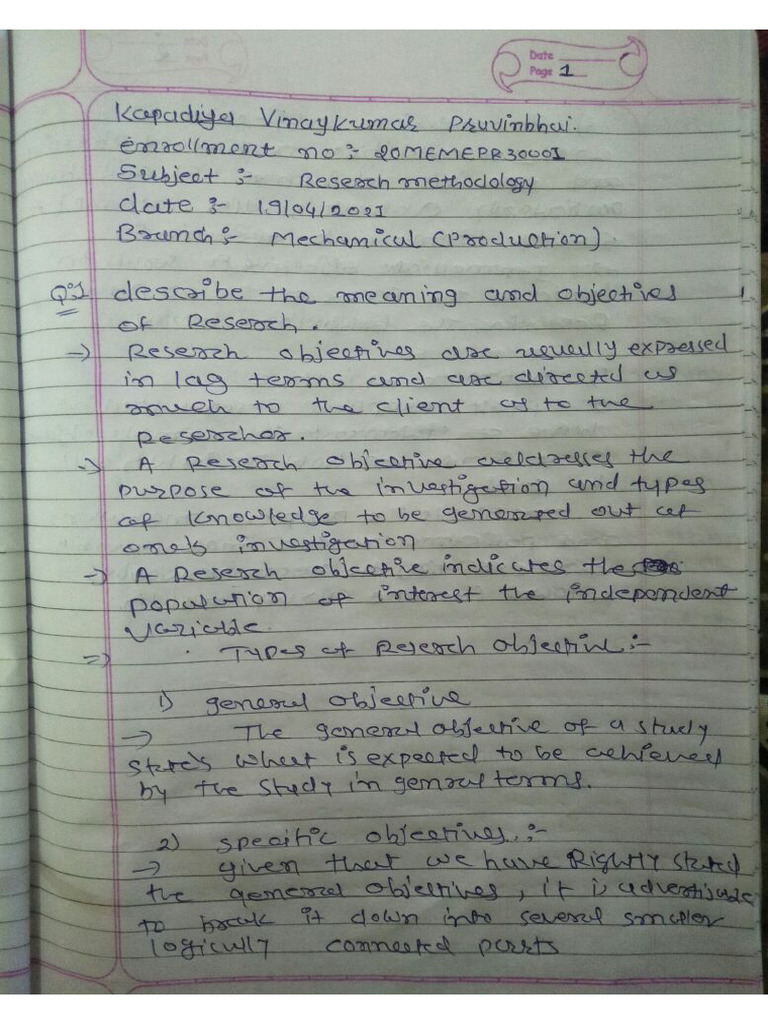 Date
Page 1
Kapadiya Vinaykumar Pravinbhai.
enrollment no :- 20MEMEPR30001
Subject :- Reserch methodology
date :- 19/04/2021
Branch :- Mechanical (Production).
Q:1 describe the meaning and objectives
of Reserch.
→ Reserch objectives are usually expressed
in lag terms and are directed as
much to the client as to the
Resercher.
→ A Reserch objective addresses the
purpose of the investigation and types
of knowledge to be generted out of
one's investigation
→ A Reserch objective indicates the
population of interest the independent
variable.
⇒ Types of Reserch objective :-
1) general objective
→ The general objective of a study
state's what is expected to be achieved
by the study in genral terms.
2) specific objectives :-
→ given that we have Rightly stated
the general objectives, it is advertisable
to break it down into several smaller
logically connected parts